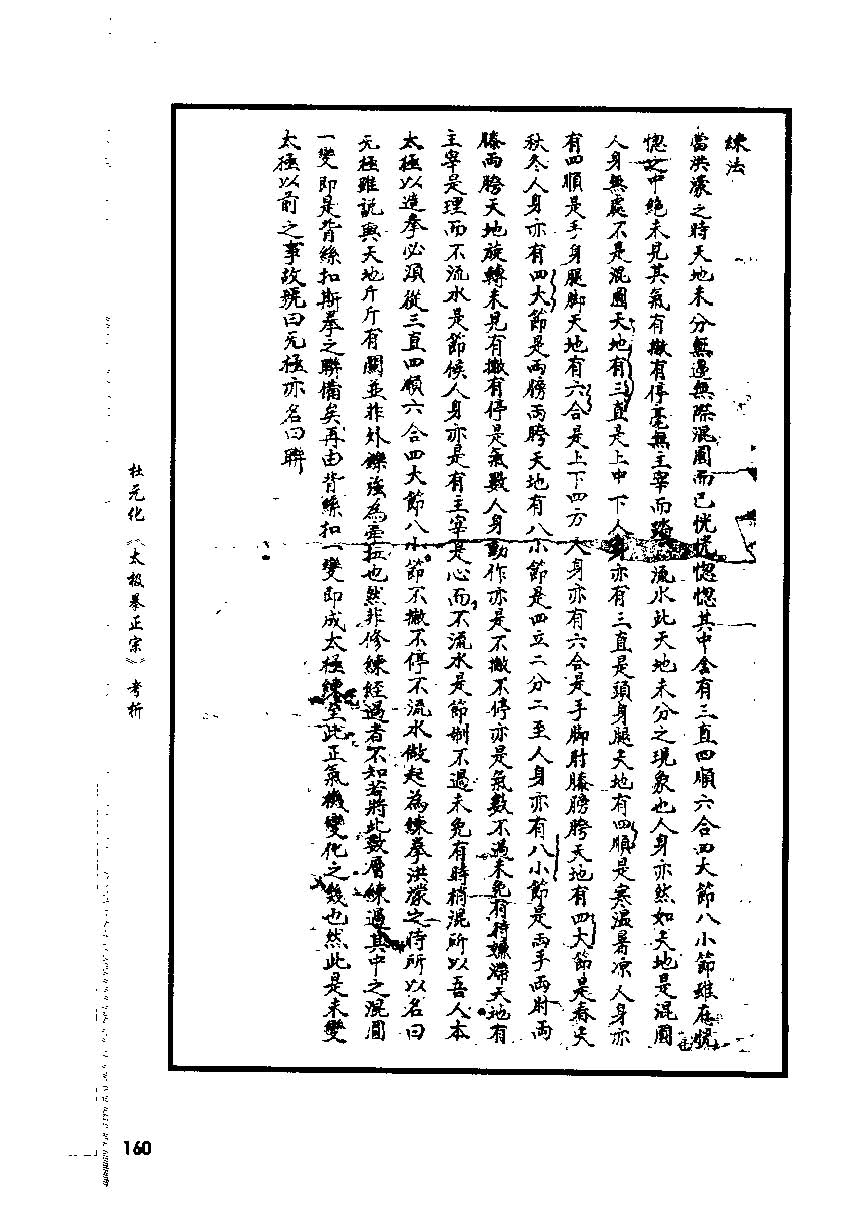 練法
當洪濛之時天地未分無邊無際混圓而已恍恍惚惚其中含有三直四順六合四大節八小節雖在恍
惚之中絶未見其氣有撤有停毫無主宰而流水此天地未分之現象也人身亦然如天地是混圓
人身無處不是混圓天地有三直是上中下人身亦有三直是頭身腿天地有四順是寒温暑凉人身亦
有四順是手身腿脚天地有六合是上下四方人身亦有六合是手脚肘膝膀胯天地有四大節是春夏
秋冬人身亦有四大節是両膀両胯天地有八小節是四立二分二至人身亦有八小節是両手両肘両
膝両胯天地旋轉未見有撤有停是氣數人身動作亦是不撤不停亦是氣數不過未免有時嫌滯天地有
主宰是理而不流水是節候人身亦是有主宰是心而不流水是節制不過未免有時稍混所以吾人本
太極以造拳必須從三直四順六合四大節八小節不撤不停不流水做起為練拳洪濛之時所以名曰
无極雖説與天地斤斤有關並非外鑠強為牽拉也然非修練經過者不知若將此数層練過其中之混圓
一變即是背絲扣斯拳之聯備矣再由背絲扣一變即成太極練至此正氣機變化之幾也然此是未變
太極以前之事故號曰无極亦名曰聯
杜元化《太极拳正宗》考析
160